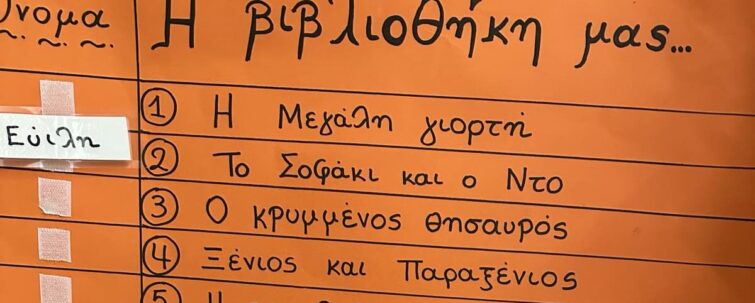 Όνομα
Η βιβλιοθήκη μας...
① Η Μεγάλη γιορτή
Εύιλη
② Το Σοφάκι και ο Ντο
③ Ο κρυμμένος θησαυρός
④ Ξένιος και Παραξένιος
⑤ Η